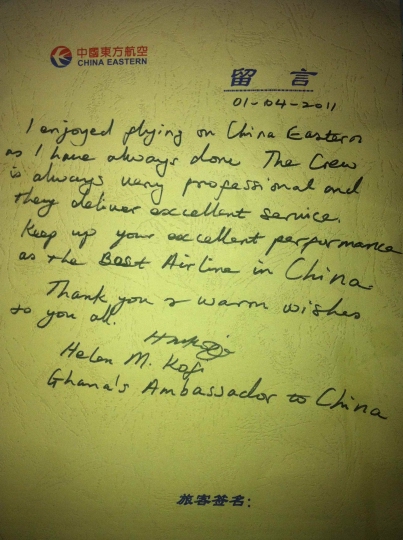 中國東方航空
CHINA EASTERN
留言
01-04-2011
I enjoyed flying on China Eastern
as I have always done. The Crew
is always very professional and
they deliver excellent service.
Keep up your excellent performance
as the Best Airline in China.
Thank you & warm wishes
to you all.
Helen M. Kofi
Ghana's Ambassador to China
旅客签名: